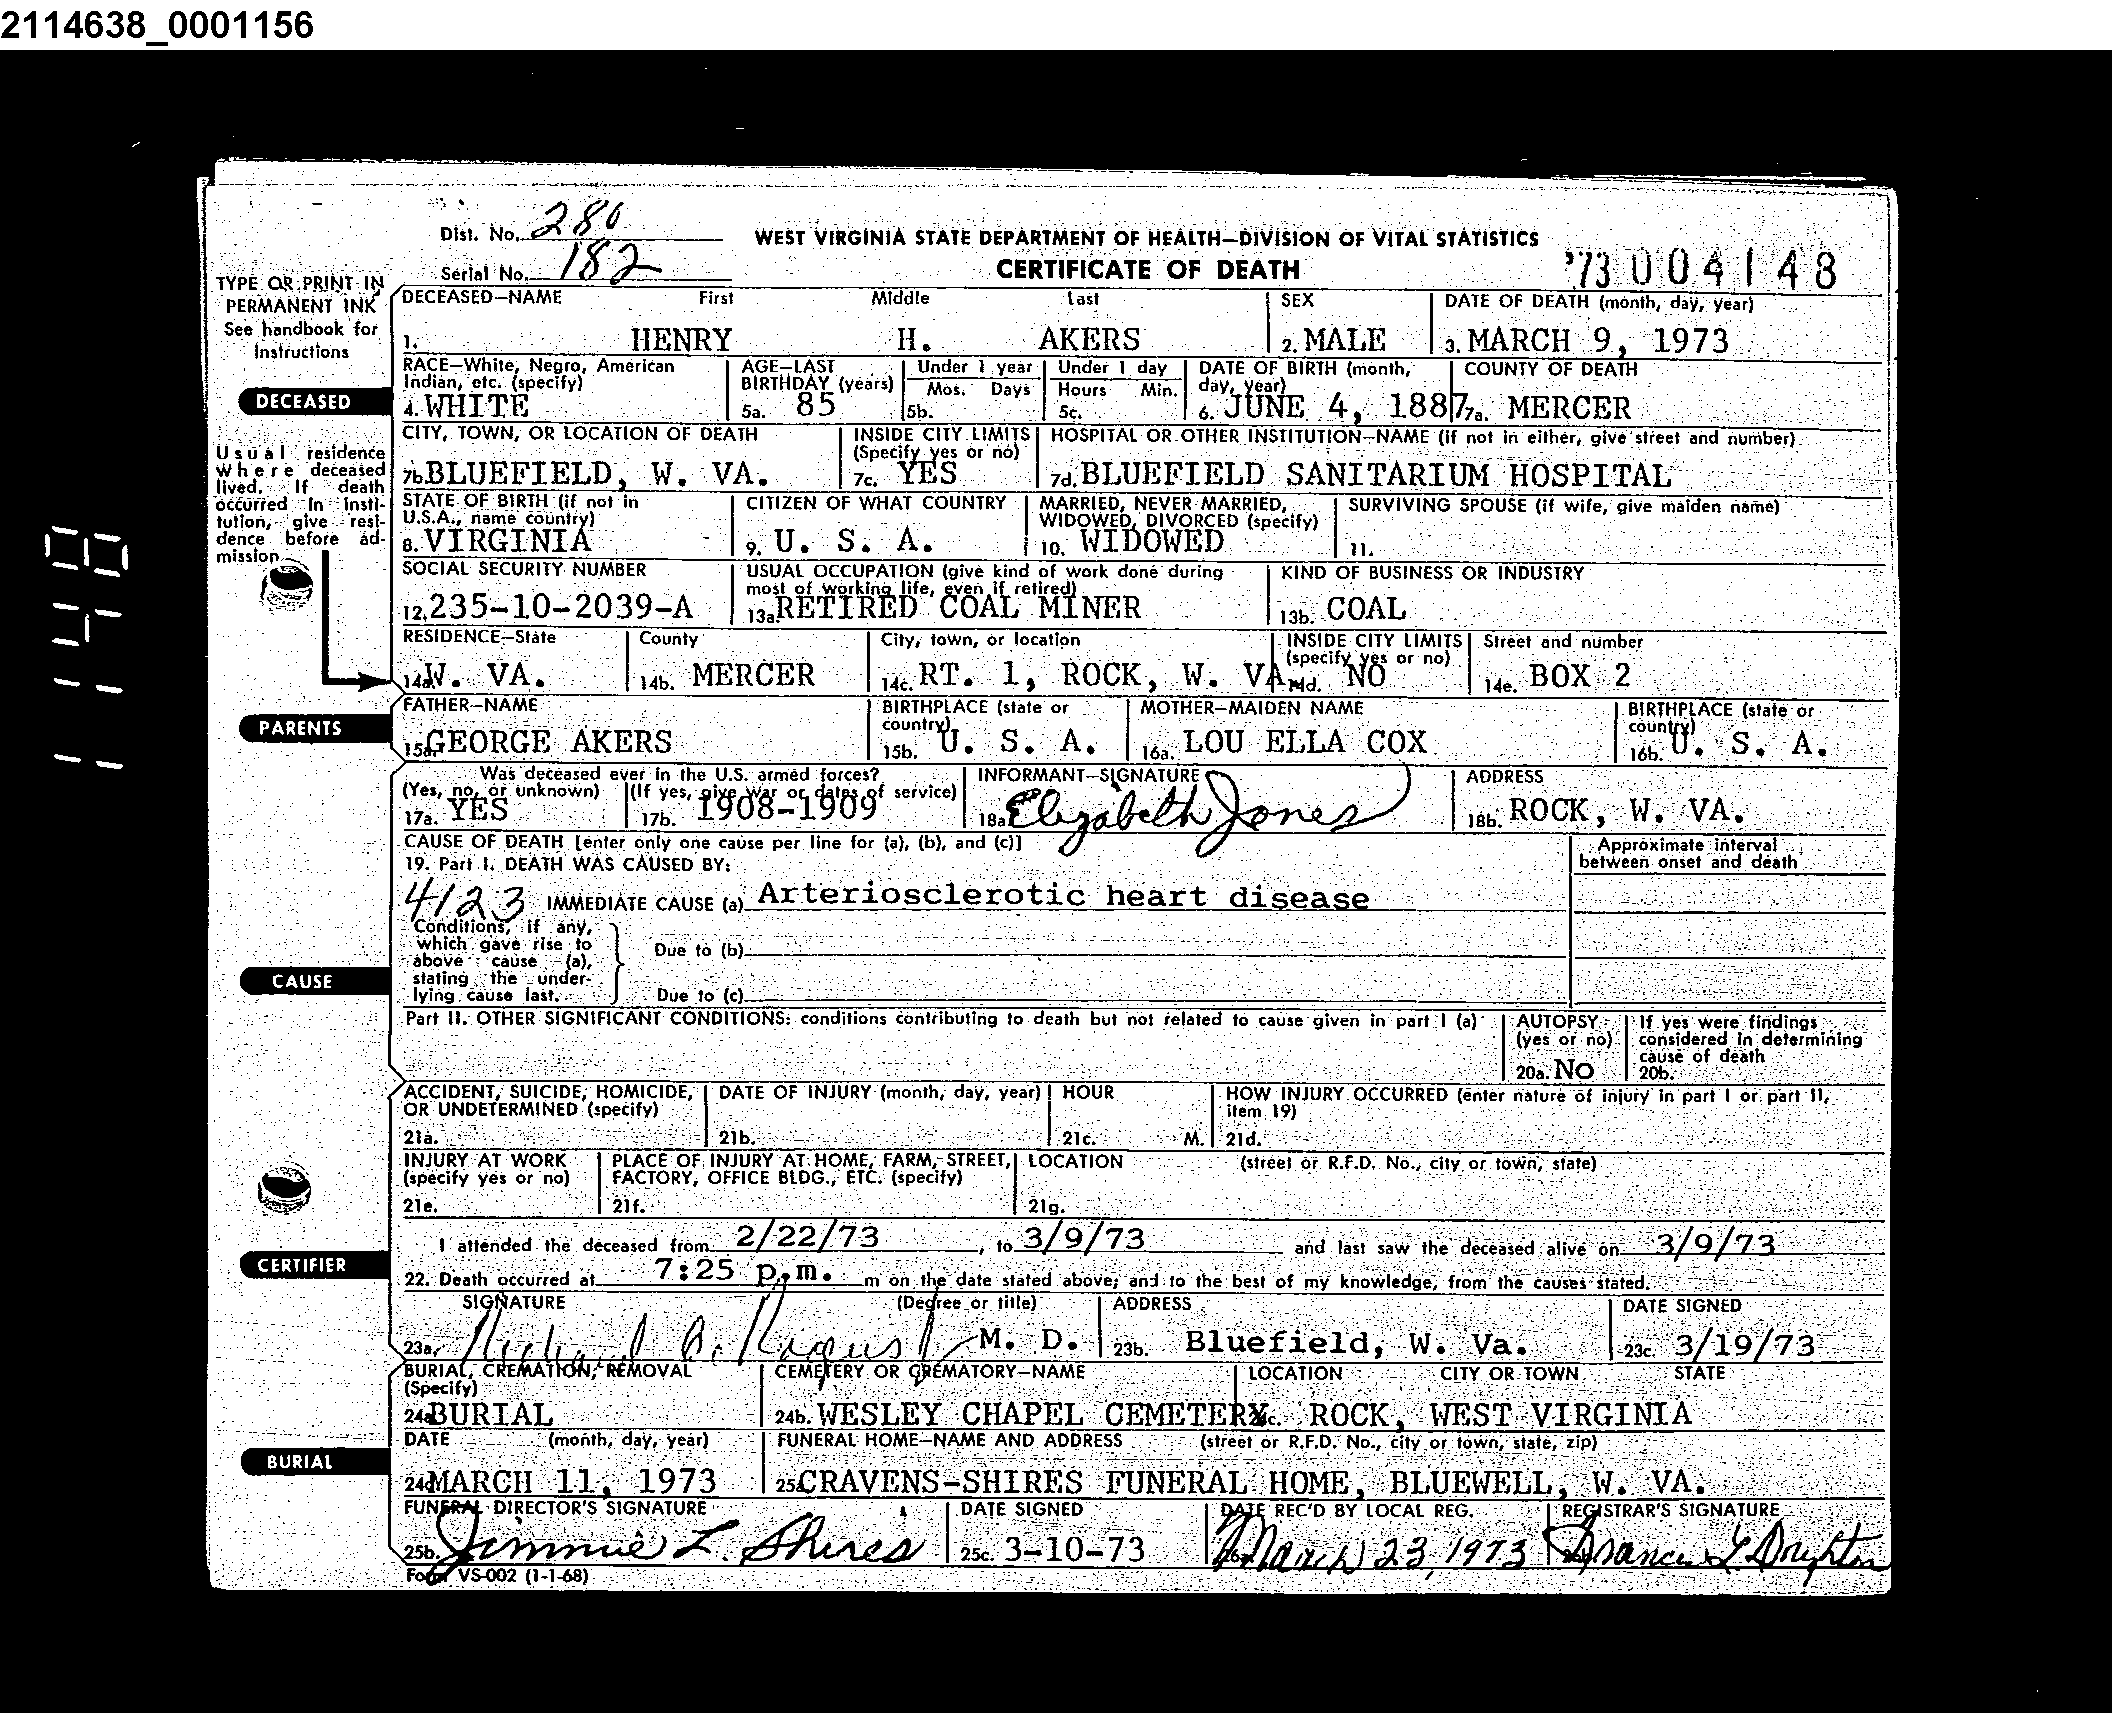 2114638_0001156
Dist. No. 280
Serial No. 182
WEST VIRGINIA STATE DEPARTMENT OF HEALTH—DIVISION OF VITAL STATISTICS
CERTIFICATE OF DEATH
'73 004148
TYPE OR PRINT IN
PERMANENT INK
See handbook for
Instructions
DECEASED—NAME First Middle Last SEX DATE OF DEATH (month, day, year)
1. HENRY H. AKERS 2. MALE 3. MARCH 9, 1973
RACE—White, Negro, American Indian, etc. (specify)
4. WHITE
AGE—LAST BIRTHDAY (years)
5a. 85
Under 1 year Mos. Days
5b.
Under 1 day Hours Min.
5c.
DATE OF BIRTH (month, day, year)
6. JUNE 4, 1887
COUNTY OF DEATH
7a. MERCER
DECEASED
Usual residence
where deceased
lived. If death
occurred in insti-
tution, give resi-
dence before ad-
mission
CITY, TOWN, OR LOCATION OF DEATH
7b. BLUEFIELD, W. VA.
INSIDE CITY LIMITS (Specify yes or no)
7c. YES
HOSPITAL OR OTHER INSTITUTION—NAME (if not in either, give street and number)
7d. BLUEFIELD SANITARIUM HOSPITAL
STATE OF BIRTH (if not in U.S.A., name country)
8. VIRGINIA
CITIZEN OF WHAT COUNTRY
9. U. S. A.
MARRIED, NEVER MARRIED, WIDOWED, DIVORCED (specify)
10. WIDOWED
SURVIVING SPOUSE (if wife, give maiden name)
11.
SOCIAL SECURITY NUMBER
12. 235-10-2039-A
USUAL OCCUPATION (give kind of work done during most of working life, even if retired)
13a. RETIRED COAL MINER
KIND OF BUSINESS OR INDUSTRY
13b. COAL
RESIDENCE—State
14a. W. VA.
County
14b. MERCER
City, town, or location
14c. RT. 1, ROCK, W. VA.
INSIDE CITY LIMITS (specify yes or no)
14d. NO
Street and number
14e. BOX 2
PARENTS
FATHER—NAME
15a. GEORGE AKERS
BIRTHPLACE (state or country)
15b. U. S. A.
MOTHER—MAIDEN NAME
16a. LOU ELLA COX
BIRTHPLACE (state or country)
16b. U. S. A.
Was deceased ever in the U.S. armed forces?
(Yes, no, or unknown) (If yes, give war or dates of service)
17a. YES 17b. 1908-1909
INFORMANT—SIGNATURE
18a. Elizabeth Jones
ADDRESS
18b. ROCK, W. VA.
CAUSE OF DEATH [enter only one cause per line for (a), (b), and (c)]
19. Part I. DEATH WAS CAUSED BY:
Approximate interval
between onset and death
4123 IMMEDIATE CAUSE (a) Arteriosclerotic heart disease
Conditions, if any,
which gave rise to
above cause (a),
stating the under-
lying cause last.
Due to (b)
Due to (c)
CAUSE
Part II. OTHER SIGNIFICANT CONDITIONS: conditions contributing to death but not related to cause given in part I (a)
AUTOPSY (yes or no)
20a. NO
If yes were findings considered in determining cause of death
20b.
ACCIDENT, SUICIDE, HOMICIDE, OR UNDETERMINED (specify)
21a.
DATE OF INJURY (month, day, year)
21b.
HOUR
21c. M.
HOW INJURY OCCURRED (enter nature of injury in part I or part II, item 19)
21d.
INJURY AT WORK (specify yes or no)
21e.
PLACE OF INJURY AT HOME, FARM, STREET, FACTORY, OFFICE BLDG., ETC. (specify)
21f.
LOCATION (street or R.F.D. No., city or town, state)
21g.
CERTIFIER
I attended the deceased from 2/22/73, to 3/9/73 and last saw the deceased alive on 3/9/73
22. Death occurred at 7:25 p.m. m on the date stated above; and to the best of my knowledge, from the causes stated.
SIGNATURE (Degree or title)
23a. M. D.
ADDRESS
23b. Bluefield, W. Va.
DATE SIGNED
23c. 3/19/73
BURIAL, CREMATION, REMOVAL (Specify)
24a. BURIAL
CEMETERY OR CREMATORY—NAME
24b. WESLEY CHAPEL CEMETERY
LOCATION CITY OR TOWN STATE
24c. ROCK, WEST VIRGINIA
BURIAL
DATE (month, day, year)
24d. MARCH 11, 1973
FUNERAL HOME—NAME AND ADDRESS (street or R.F.D. No., city or town, state, zip)
25a. CRAVENS-SHIRES FUNERAL HOME, BLUEWELL, W. VA.
FUNERAL DIRECTOR'S SIGNATURE
25b. Jimmie L. Shires
DATE SIGNED
25c. 3-10-73
DATE REC'D BY LOCAL REG.
March 23, 1973
REGISTRAR'S SIGNATURE
Form VS-002 (1-1-68)